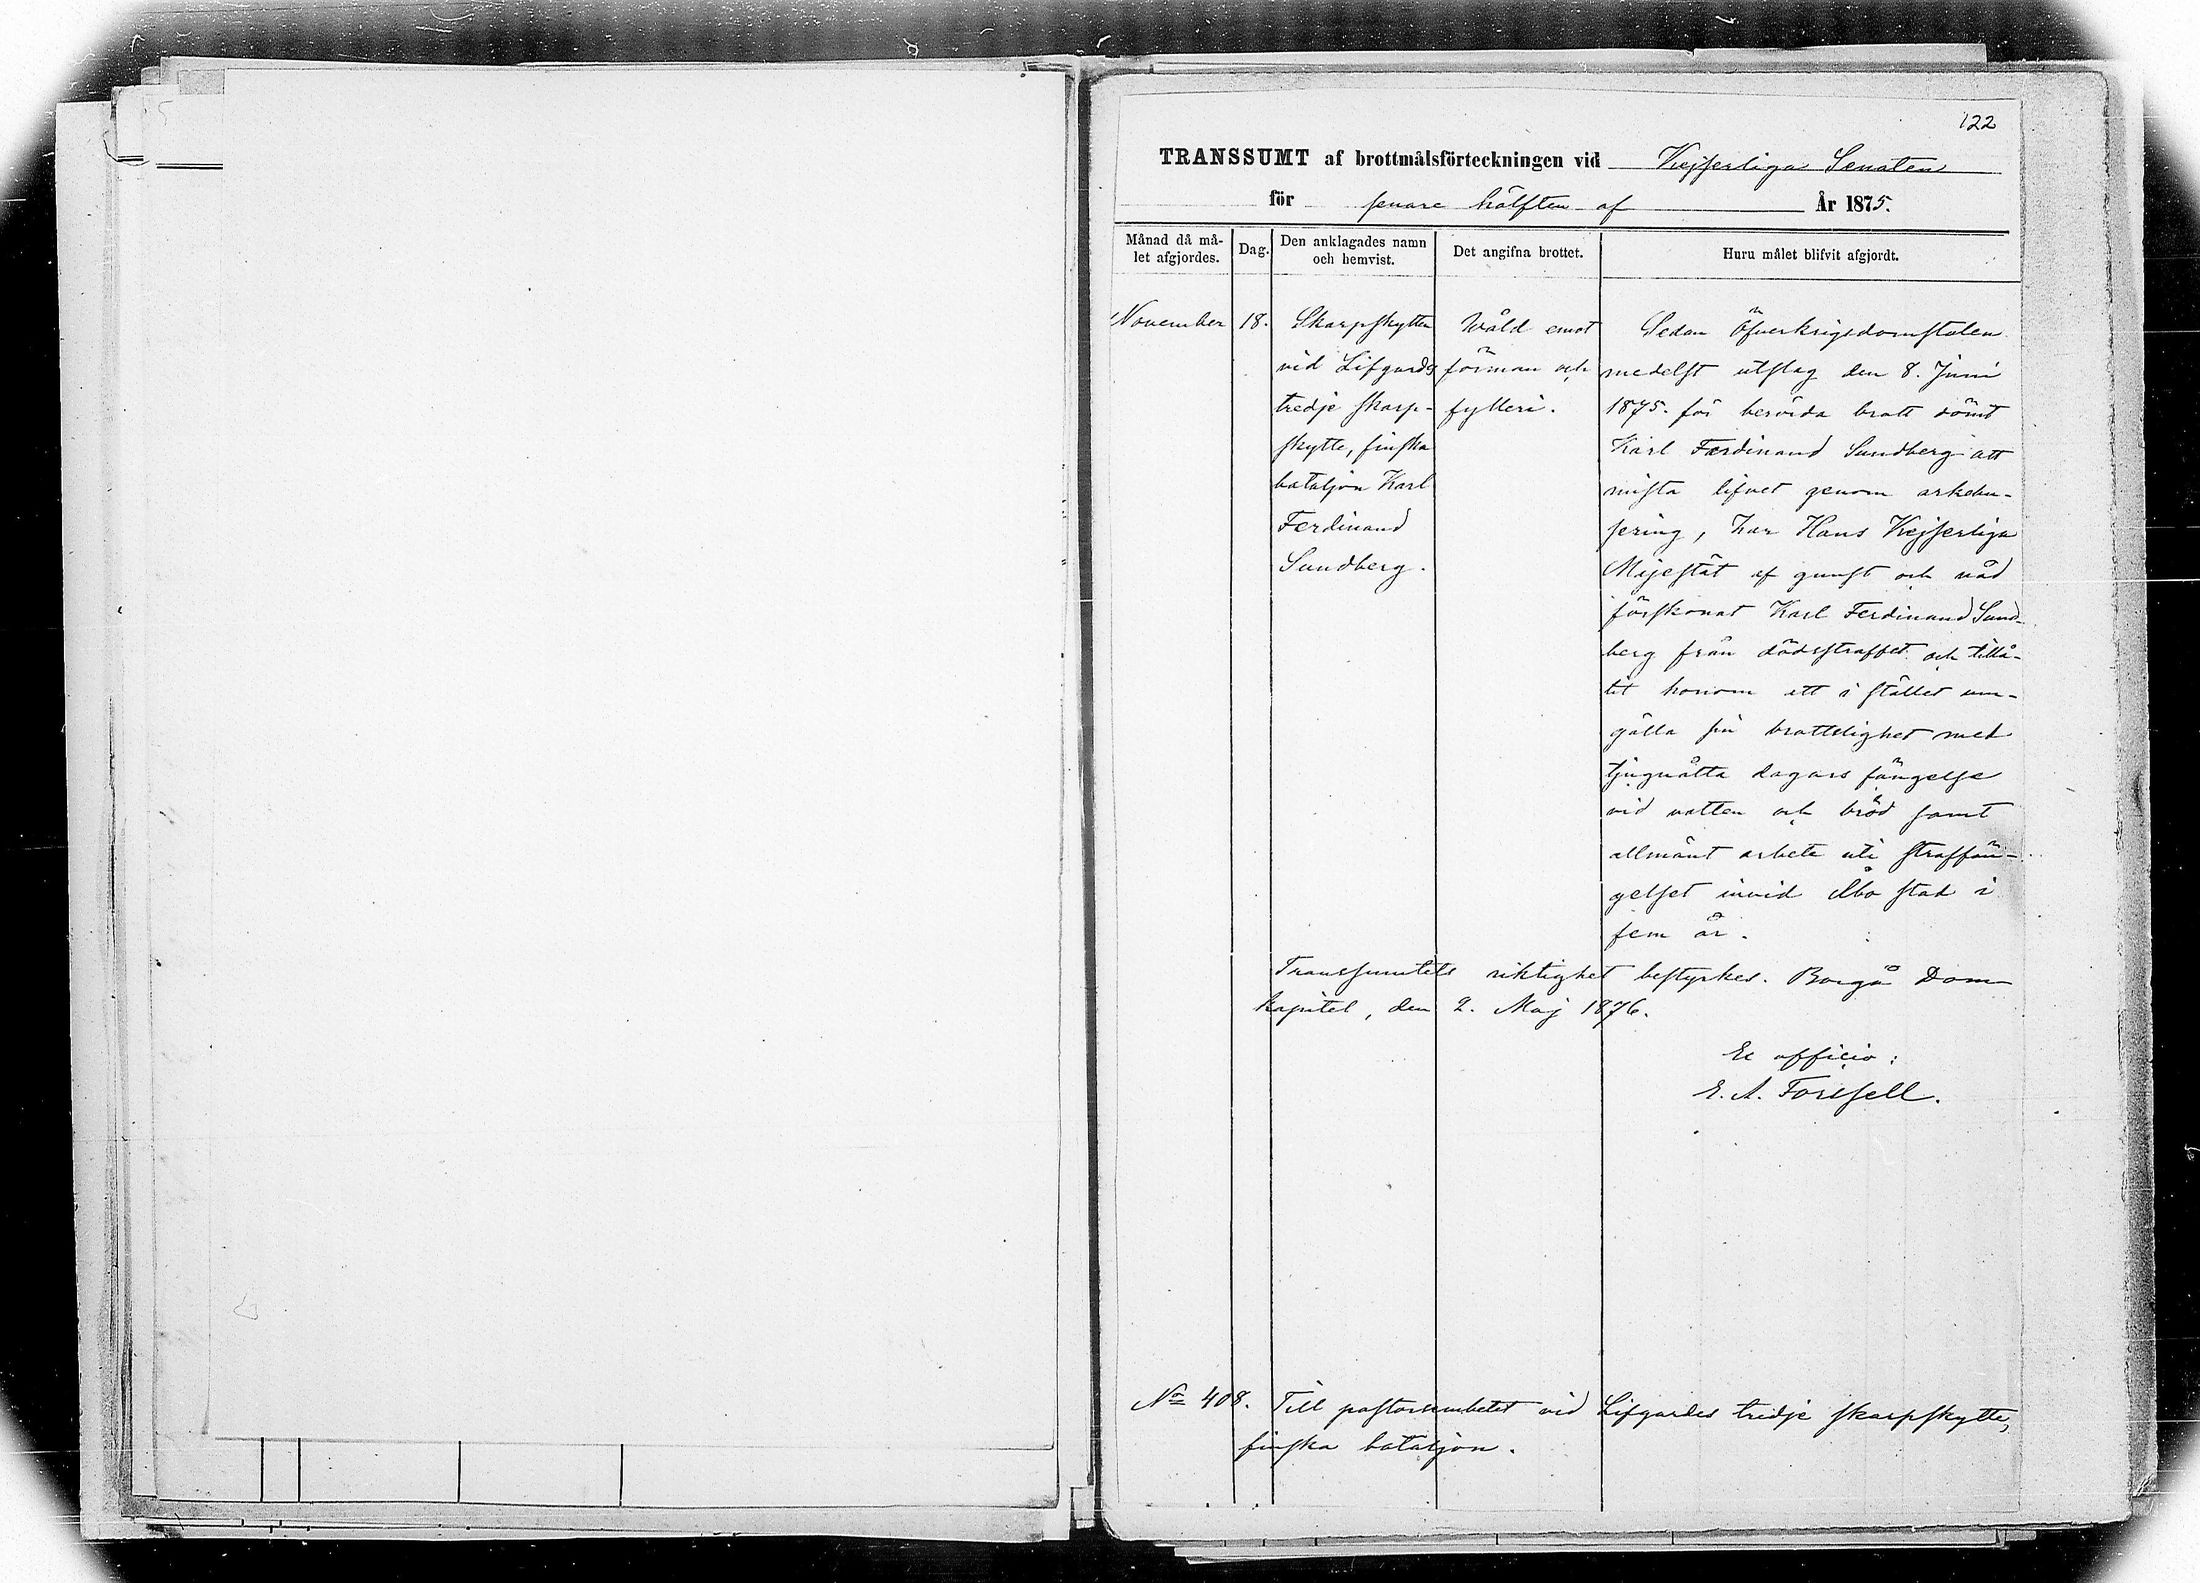 122
TRANSSUMT af brottmålsförteckningen vid Kejserliga Senaten
för senare hälften af År 1875.
Månad då må-
let afgjordes.
Dag.
Den anklagades namn
och hemvist.
Det angifna brottet.
Huru målet blifvit afgjordt.
November
18.
Skarpskytten
vid Lifgardes
tredje skarp-
skytte, finska
bataljon Karl
Ferdinand
Sundberg.
Wåld emot
förman och
fylleri.
Sedan Öfverkrigsdomstolen
medelst utslag den 8. Juni
1875. för berörda brott dömt
Karl Ferdinand Sundberg att
mista lifvet genom arkebu-
sering, har Hans Kejserliga
Majestät af gunst och nåd
förskonat Karl Ferdinand Sund-
berg från dödsstraffet och tillå-
tit honom att i stället um-
gälla sin brottslighet med
tjuguåtta dagars fängelse
vid vatten och bröd samt
allmänt arbete uti straffän-
gelset invid Åbo stad i
fem år.
Transsumtets riktighet bestyrkes. Borgå Dom-
kapitel, den 2. Maj 1876.
Ex officio:
E. A. Forssell.
No 408. Till pastorsembetet vid Lifgardes tredje skarpskytte,
finska bataljon.